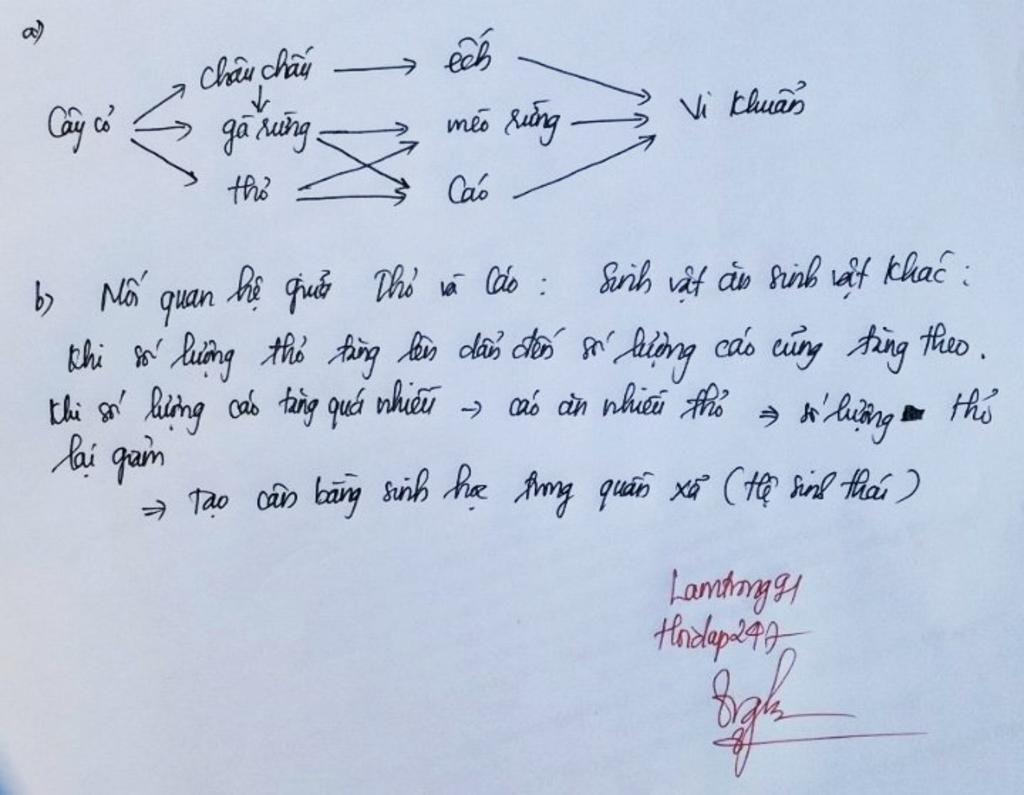 a)
Châu chấu → ếch
Cây cỏ → gà rừng → mèo rừng → Vi khuẩn
thỏ → Cáo
b) Mối quan hệ giữa Thỏ và Cáo : Sinh vật ăn sinh vật khác :
Khi số lượng thỏ tăng lên dẫn đến số lượng cáo cũng tăng theo.
Khi số lượng cáo tăng quá nhiều → cáo ăn nhiều thỏ ⇒ số lượng thỏ
lại giảm
⇒ Tạo cân bằng sinh học trong quần xã (Hệ sinh thái)
Lamtrong91
Hoidap247